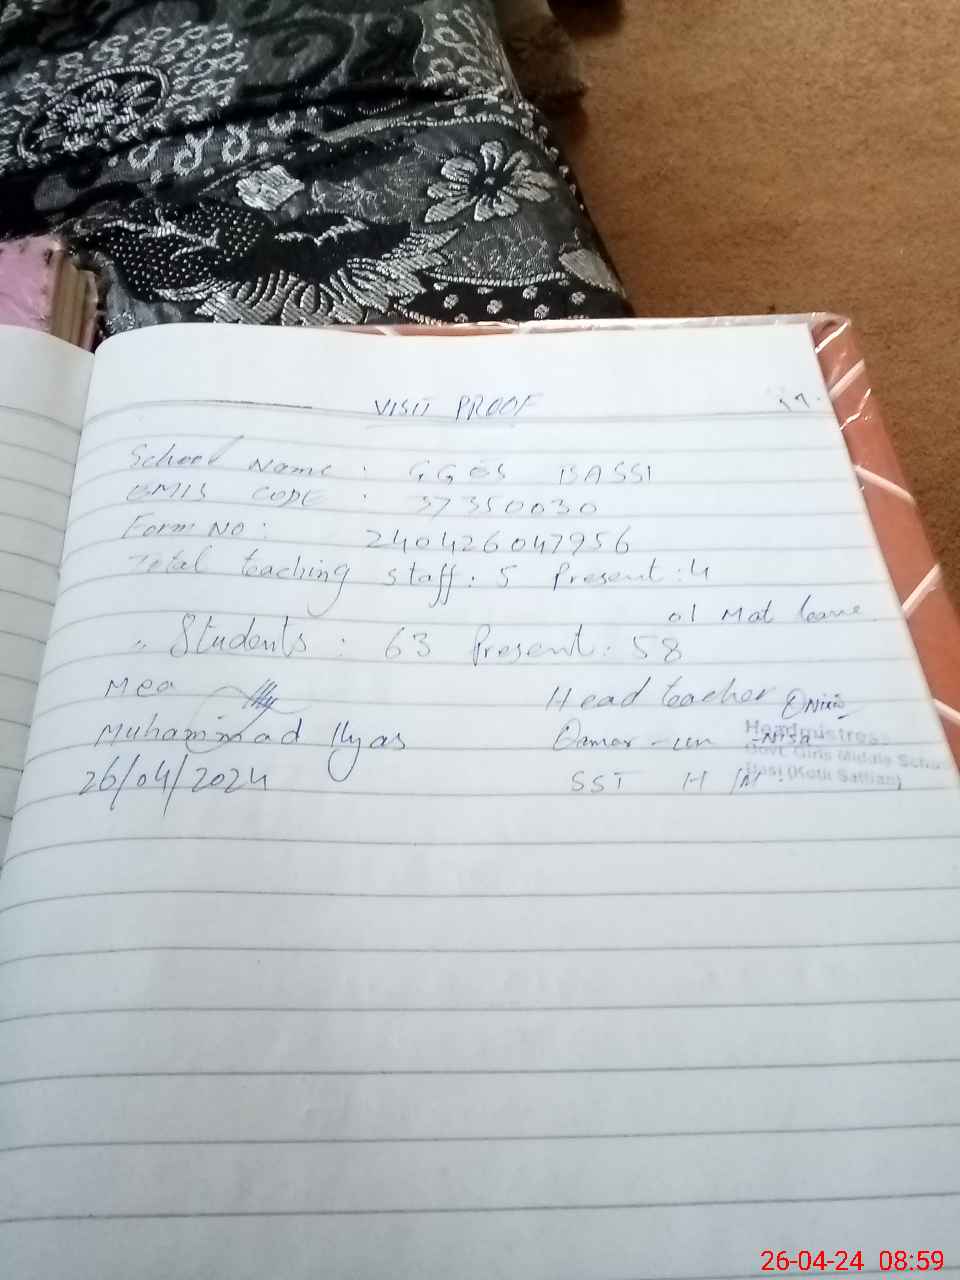 VISIT PROOF
17.
School Name : GGES BASSI
EMIS CODE : 37350030
Form No : 240426047956
Total teaching staff : 5 Present : 4
01 Mat leave
" Students : 63 Present : 58
Mea Head teacher
Muhammad Ilyas Qamar-un-Nisa
26/04/2024 SST H/M
Headmistress
Govt. Girls Middle School
Basi (Kotli Sattian)
26-04-24 08:59